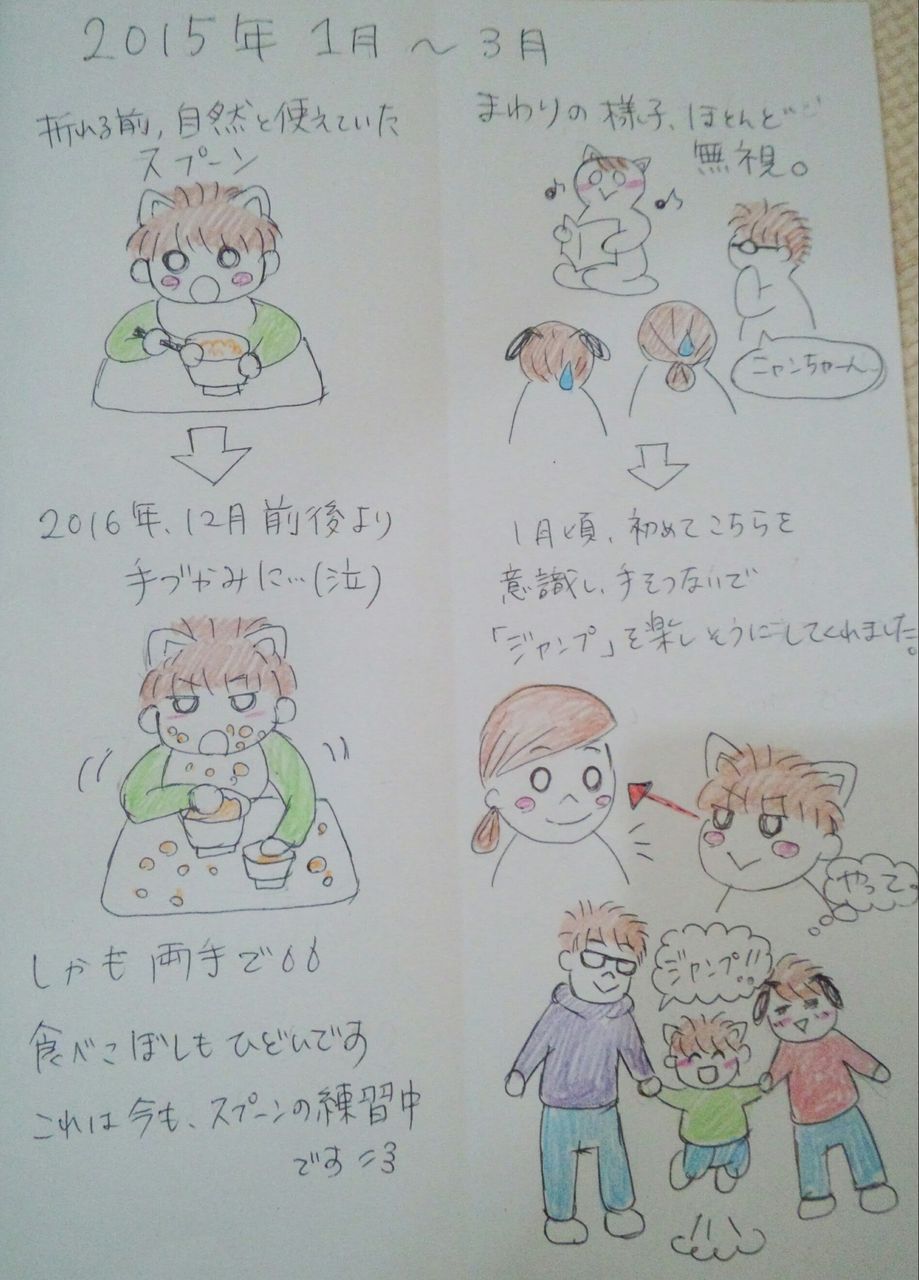 2015年 1月 ～ 3月
折れる前、自然と使えていた
スプーン
2016年、12月前後より
手づかみに…(泣)
しかも 両手で
食べこぼしも ひどいです
これは今も、スプーンの練習中
です =3
まわりの 様子、ほとんど
無視。
ニャンちゃーん
1月頃、初めてこちらを
意識し、手をつないで
「ジャンプ」を楽しそうにしてくれました。
やって
ジャンプ!!